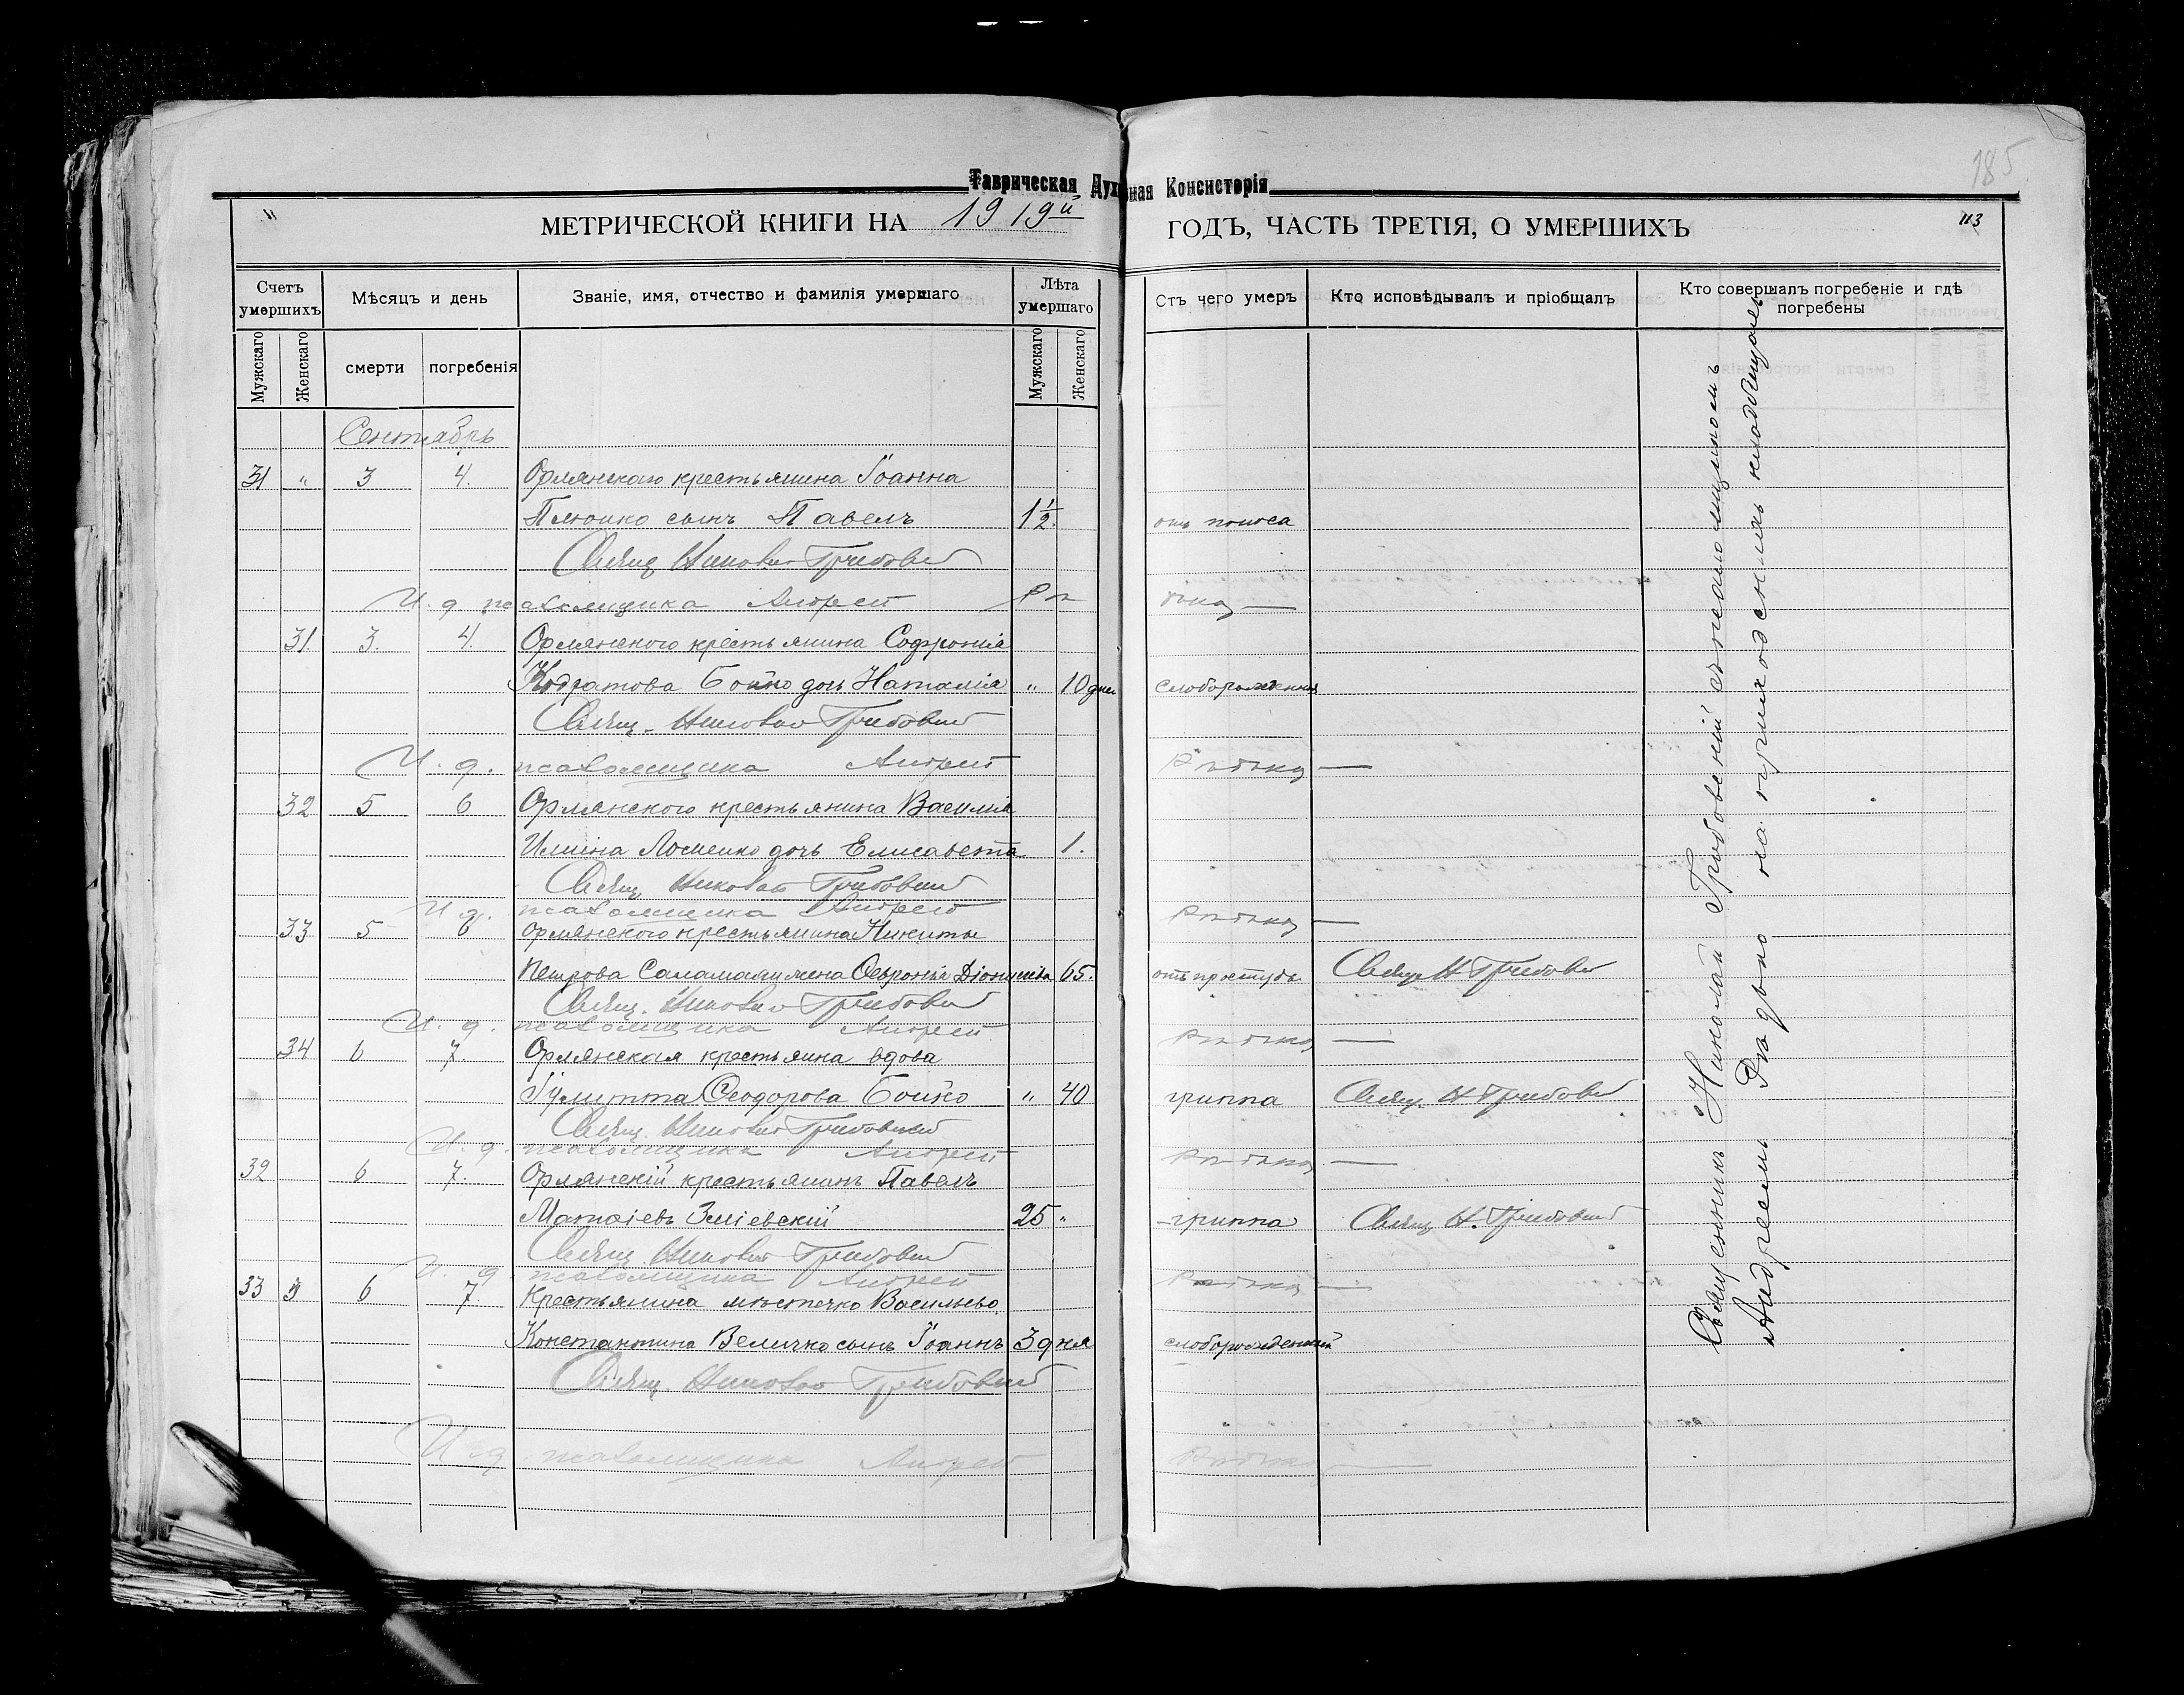 185
Таврическая Духовная Консисторія
МЕТРИЧЕСКОЙ КНИГИ НА 1919й ГОДЪ, ЧАСТЬ ТРЕТІЯ, О УМЕРШИХЪ 113
Счетъ умершихъ
Мѣсяцъ и день
Званіе, имя, отчество и фамилія умершаго
Лѣта умершаго
Отъ чего умеръ
Кто исповѣдывалъ и пріобщалъ
Кто совершалъ погребеніе и гдѣ погребены
Мужскаго Женскаго смерти погребенія Мужскаго Женскаго
Сентябрь
31 " 3 4. Орлянскаго крестьянина Іоанна
сынъ Павелъ 1½ отъ поноса
Свящ. Николай Грибовскій
И. д. псаломщика Андрей
31. 3. 4. Орлянского крестьянина Софронія
Кодратова Бойко дочь Наталія " 10 дней слаборожденная
Свящ. Николай Грибовскій
И. д. псаломщика Андрей
32 5 6 Орлянского крестьянина Василія
дочь Елисавета 1.
Свящ. Николай Грибовскій
И. д. псаломщика Андрей
33 5 6 Орлянского крестьянина Никиты
Петрова жена Февронія Діонисіева 65. отъ простуды Свящ. Н Грибовскій
Свящ. Николай Грибовскій
И. д. псаломщика Андрей
34 6 7. Орлянская крестьянка вдова
Іулитта Ѳеодорова Бойко " 40 гриппа Свящ. Н Грибовскій
Свящ. Николай Грибовскій
И. д. псаломщика Андрей
32 6 7. Орлянскій крестьянинъ Павелъ
Матѳіевъ Зміевскій 25 " гриппа Свящ Н. Грибовскій
Свящ Николай Грибовскій
И. д. псаломщика Андрей
33 6 7 Крестьянина мѣстечко
Константина Величко сынъ Іоаннъ 3 дня слаборожденный
Свящ. Николай Грибовскій
И. д. псаломщика Андрей
Священникъ Николай Грибовскій съ псаломщикомъ
Андреемъ на приходскомъ кладбищѣ